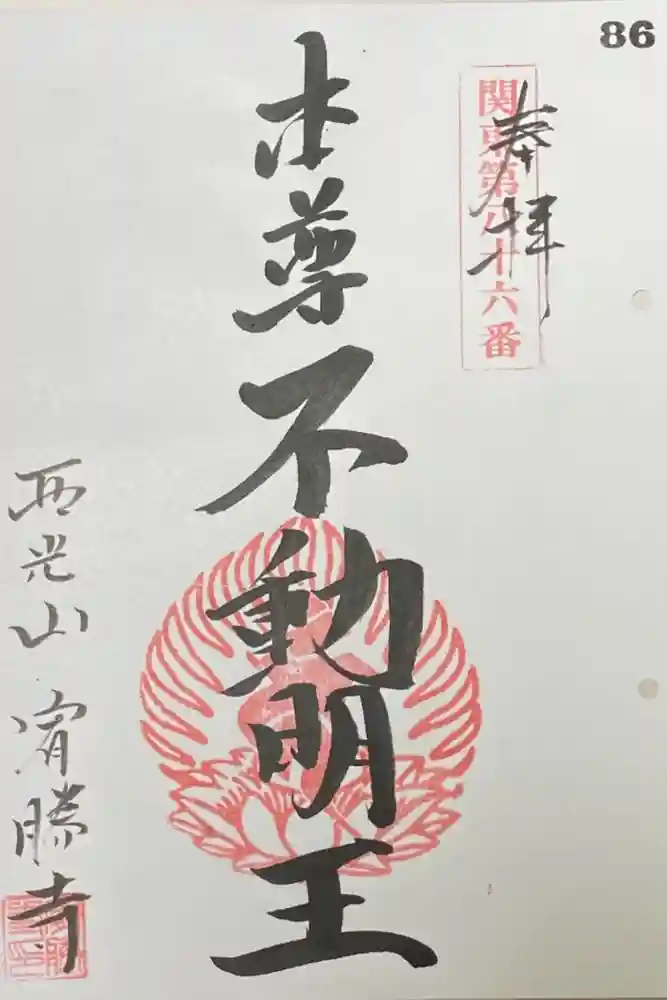 86
関東第八十六番
奉拝
本尊不動明王
西光山 宥勝寺